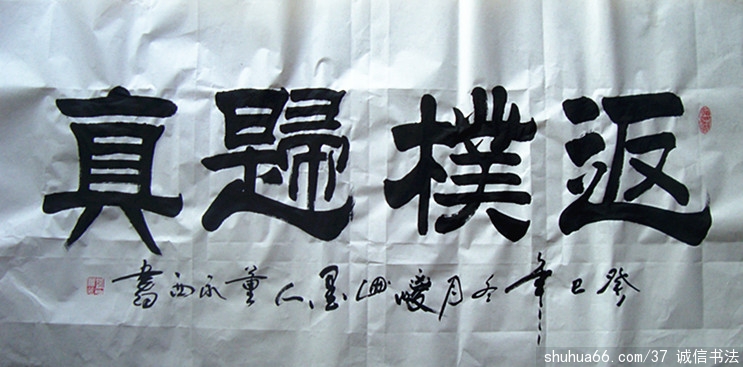 返樸歸真
癸巳年冬月嗳迪墨人董永西書
shuhua66.com/37 诚信书法